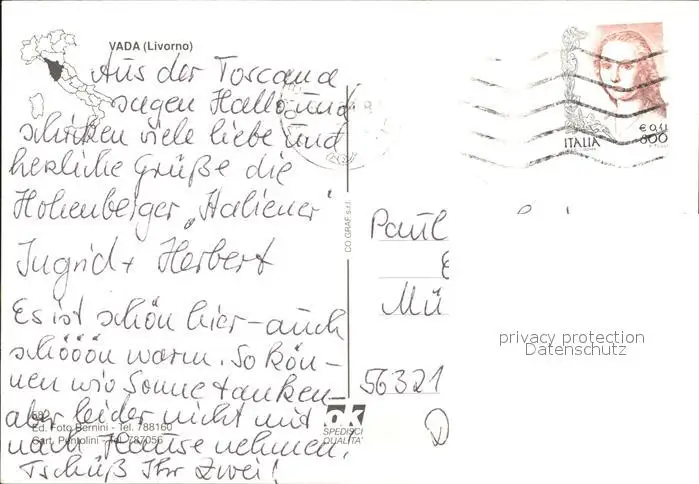 VADA (Livorno)
Aus der Toscana
sagen Hallo und
schicken viele liebe und
herzliche Grüße die
Hohenberger „Italiener"
Ingrid + Herbert
Es ist schön hier – auch
schööön warm. So kön-
nen wir Sonne tanken –
aber leider nicht mit
nach Hause nehmen!
Tschüß Ihr Zwei!
Ed. Foto Bernini - Tel. 788160
Cart. Pentolini - Tel. 787056
DO.GRAF s.r.l.
ok
SPEDISCI
QUALITA'
€ 0,41
800
ITALIA
Paul
Mü
56321
D
privacy protection
Datenschutz